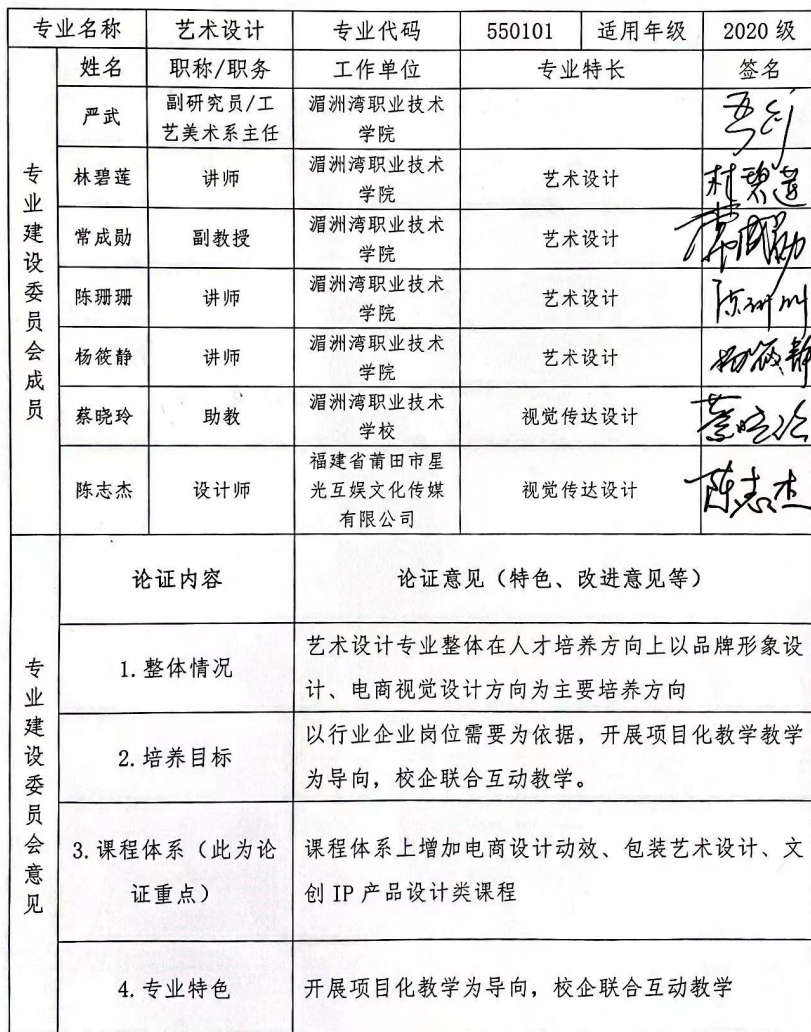 专业名称 艺术设计 专业代码 550101 适用年级 2020级
专业建设委员会成员
姓名 职称/职务 工作单位 专业特长 签名
严武 副研究员/工艺美术系主任 湄洲湾职业技术学院
林碧莲 讲师 湄洲湾职业技术学院 艺术设计 林碧莲
常成勋 副教授 湄洲湾职业技术学院 艺术设计 常成勋
陈珊珊 讲师 湄洲湾职业技术学院 艺术设计 陈珊珊
杨筱静 讲师 湄洲湾职业技术学院 艺术设计 杨筱静
蔡晓玲 助教 湄洲湾职业技术学校 视觉传达设计 蔡晓玲
陈志杰 设计师 福建省莆田市星光互娱文化传媒有限公司 视觉传达设计 陈志杰
专业建设委员会意见
论证内容 论证意见（特色、改进意见等）
1.整体情况
艺术设计专业整体在人才培养方向上以品牌形象设
计、电商视觉设计方向为主要培养方向
2.培养目标
以行业企业岗位需要为依据，开展项目化教学教学
为导向，校企联合互动教学。
3.课程体系（此为论
证重点）
课程体系上增加电商设计动效、包装艺术设计、文
创IP产品设计类课程
4.专业特色
开展项目化教学为导向，校企联合互动教学